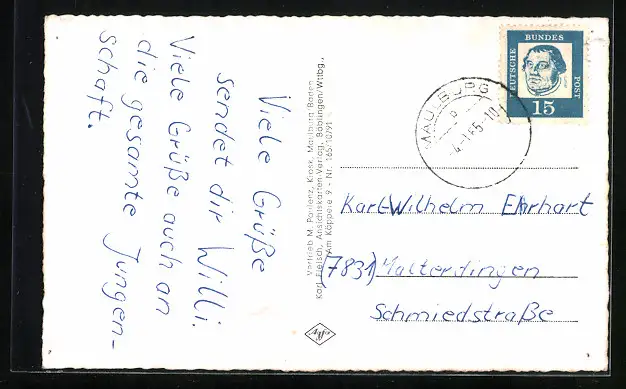 Viele Grüße
sendet dir Willi.
Viele Grüße auch an
die gesamte Jungen-
schaft.
Vertrieb M. Panterz, Kiosk, Maulburg/Baden
Karl Fleisch, Ansichtskarten-Verlag, Böblingen/Wttbg.,
Am Käppele 9 - Nr. 165/10791
DEUTSCHE BUNDES POST
15
MAULBURG
Karl-Wilhelm Ehrhart
(7831) Malterdingen
Schmiedstraße